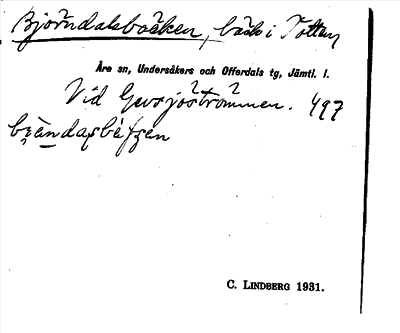 Björndalsbäcken, bäck i Totten
Åre sn, Undersåkers och Offerdals tg, Jämtl. l.
Vid Gevsjöströmmen. 497
C. LINDBERG 1931.